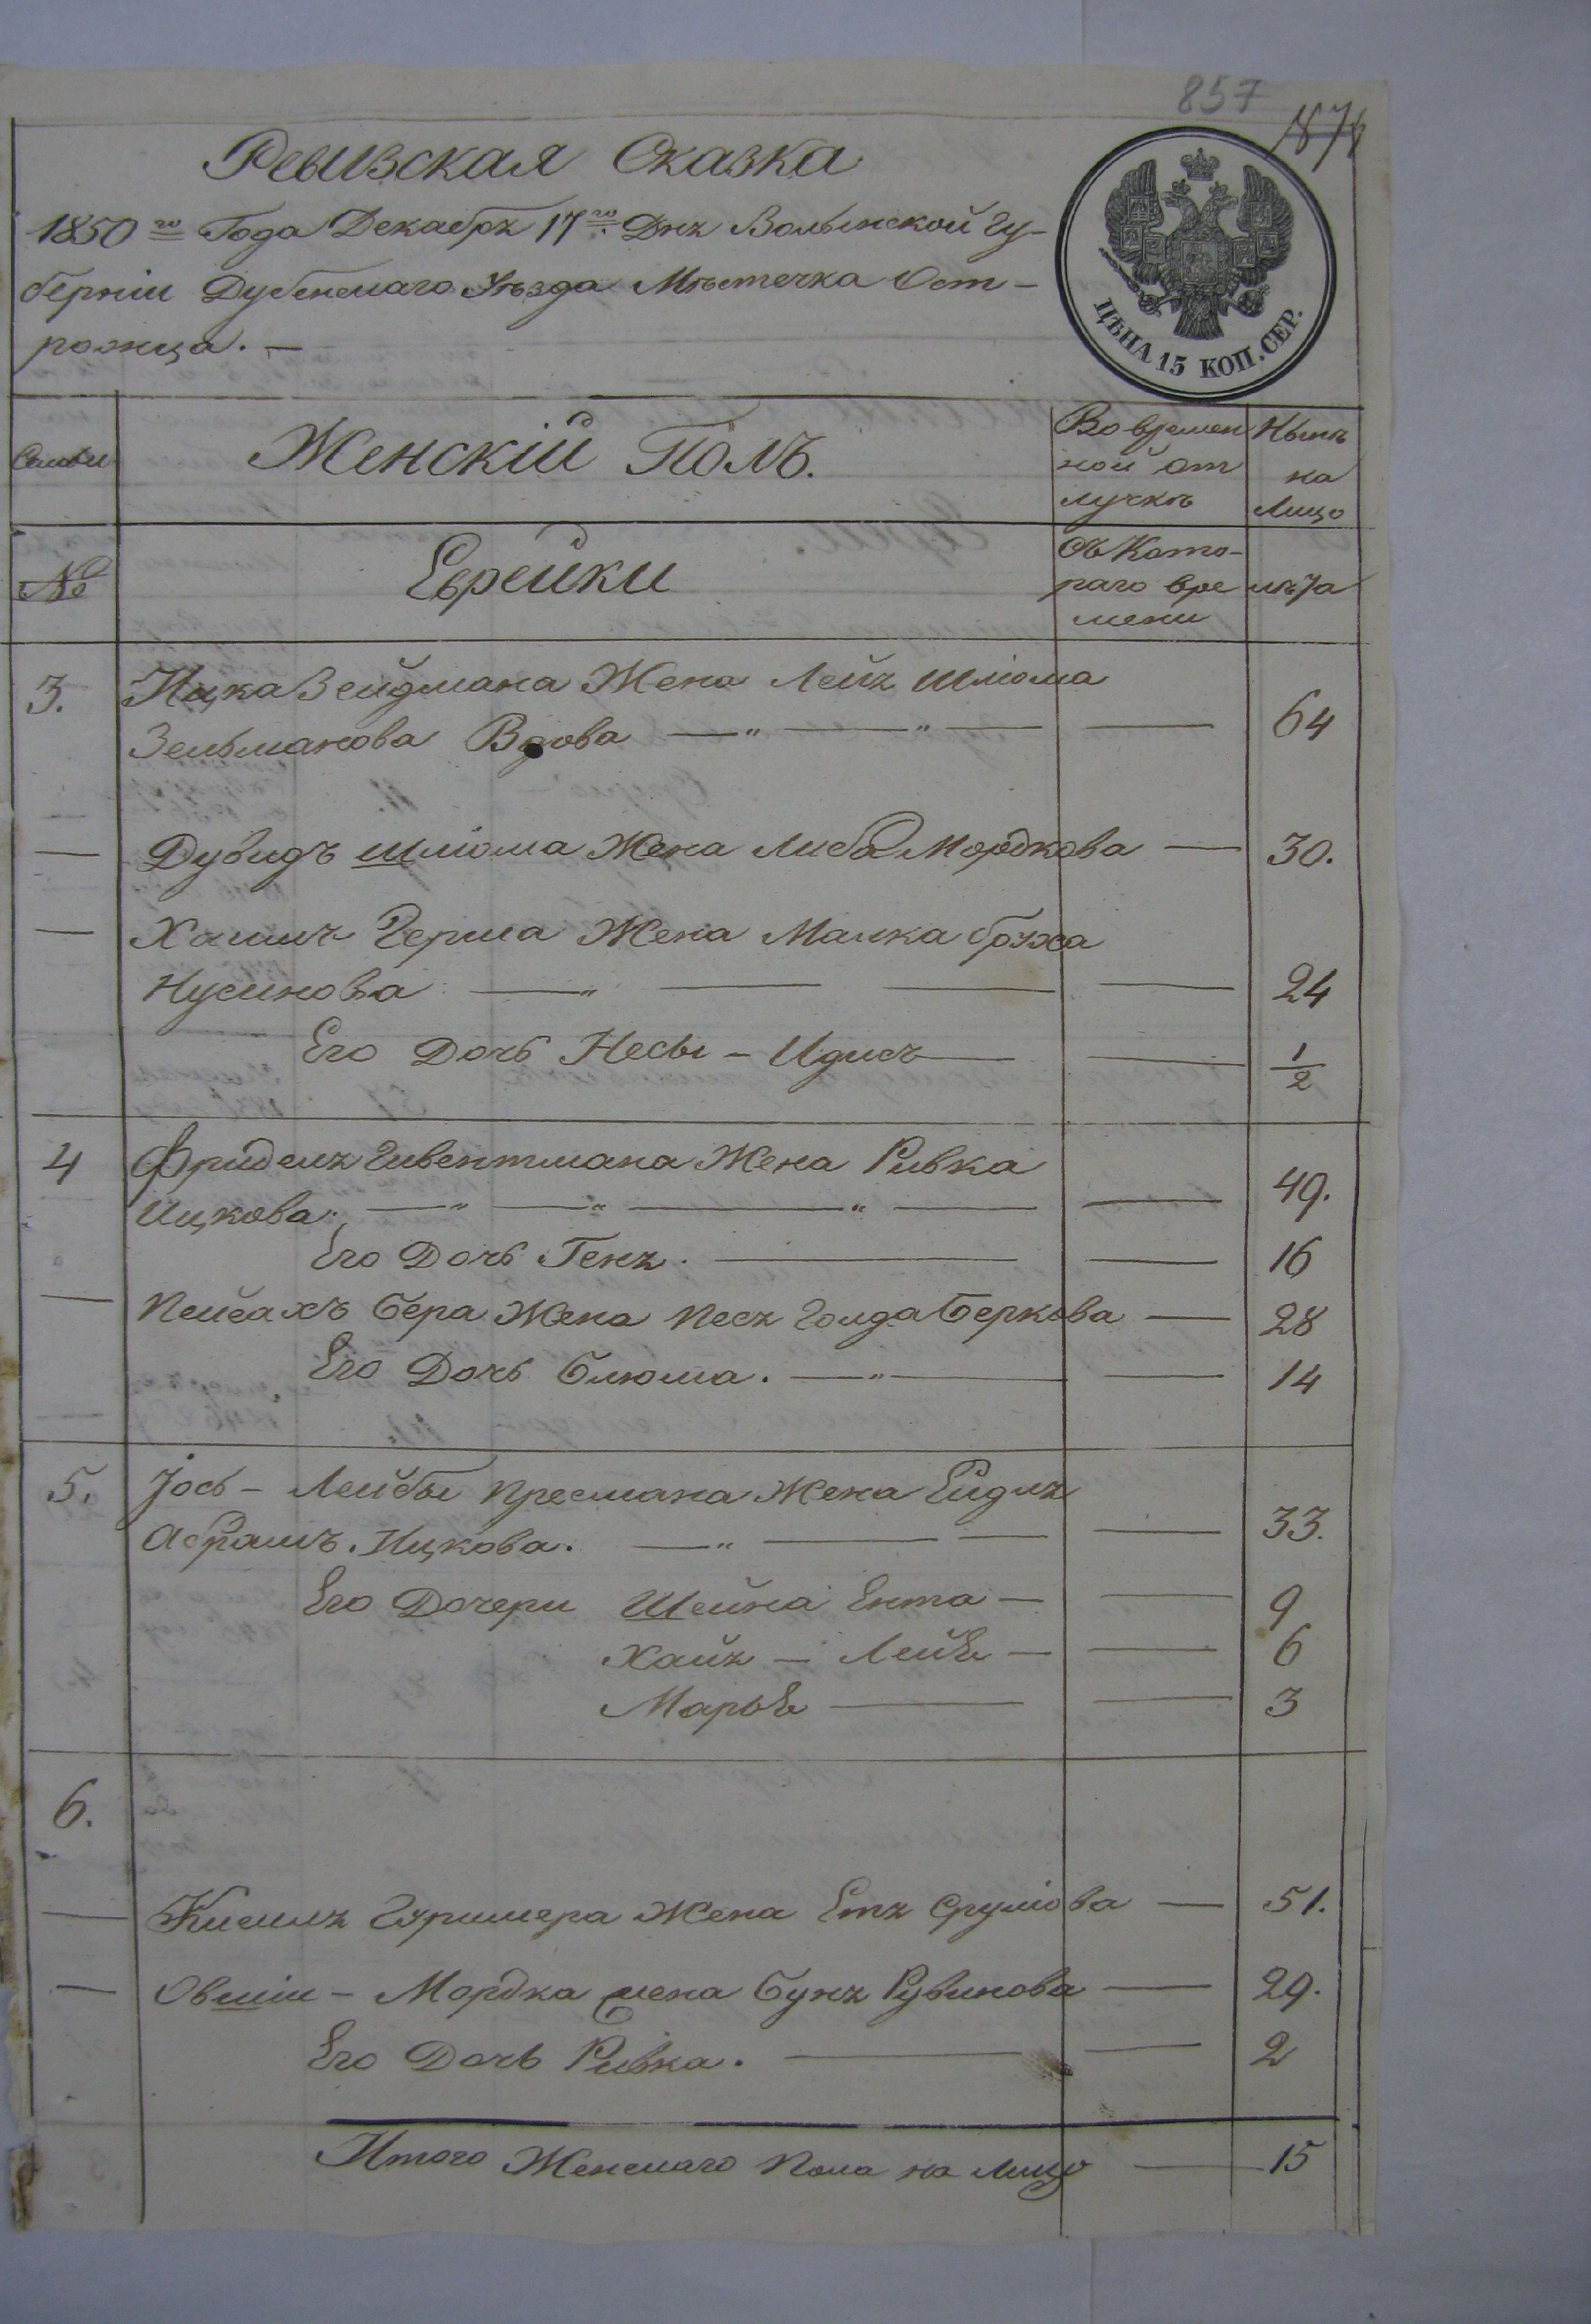 857
1874
Ревизская Сказка
1850го Года Декабря 17го Дня Волынской Гу-
берніи Дубенскаго Уѣзда Мѣстечка Ост-
рожца. —
ЦѢНА 15 КОП. СЕР.
Семьи
Женскій Полъ.
Во времен
ной от
лучкѣ
Нынѣ
на
Лицо
№
Еврейки
Съ Кото-
раго вре
мени
лѣта
3. Ицка Зейдмана Жена Лейя Шліома
Зельманова Вдова — " — " — — 64
— Дувидъ Шліома Жена Либа Мордкова — 30.
— Хаимъ Герша Жена Малка Бруха
Нусинова — " — — — 24
Его Дочь Несы - Идисъ — — 1/2
4 Фриделя Гивентмана Жена Ривка
Ицкова. — " — " — " — — 49.
Его Дочь Геня. — — 16
— Пейсахъ Бера Жена Песя Голда Беркова — 28
Его Дочь Блюма. — " — — 14
5. Іось - Лейбы Пресмана Жена Ейдля
Абрамъ. Ицкова. — " — — — 33.
Его Дочери Шейна Ента — — 9
Хайя — Лейѣ — — 6
Марьѣ — — 3
6.
— Кисиля Гуримера Жена Етя Сруліова — 51.
— Овшіи - Мордка жена Буня Рувинова — 29.
Его Дочь Ривка. — — 2
Итого Женскаго Пола на лицо — 15